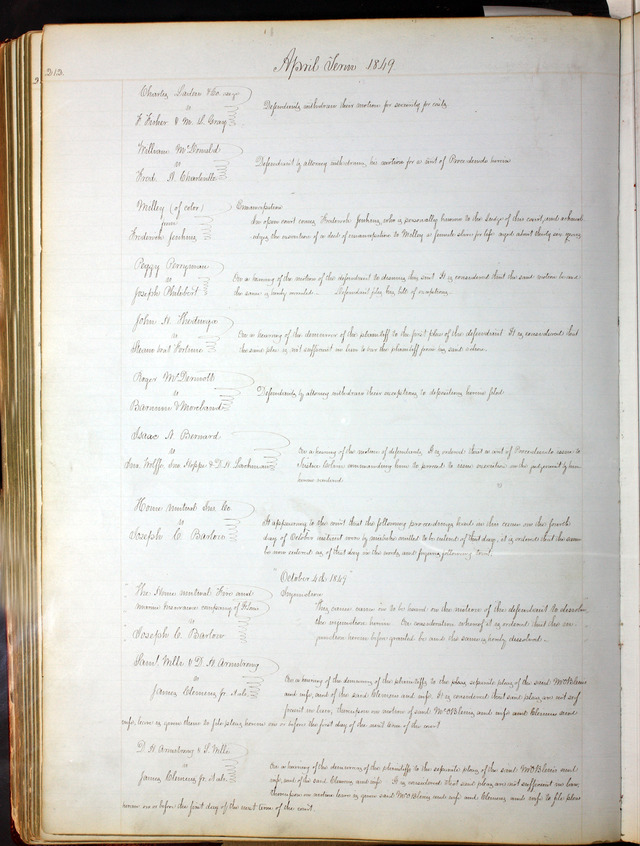 212.
April Term 1849
Charles & Co.
vs
F Fisher & M. S. Gray
Defendants withdraw their motion for security for costs
William McDonald
vs
Fred. A. Charleville
Defendant by attorney withdraws his motion for a writ of Procedendo herein
Milley (of color)
from
Frederick Jenkins
Emancipation
In open court comes Frederick Jenkins, who is personally known to the Judge of this court, and acknowl
edges the execution of a deed of emancipation to Milley a female slave for life aged about thirty six years
Peggy Perryman
vs
Joseph Philibert
On a hearing of the motion of the defendant to dismiss this suit It is considered that the said motion be and
the same is hereby overruled. Defendant files his bill of exceptions.
John H.
vs
Steam boat Fortune
On a hearing of the demurrer of the plaintiff to the first plea of the defendant It is considered that
the said plea is not sufficient in law to bar the plaintiff from his said action.
Roger McDermott
vs
& Marchand
Defendants by attorney withdraw their exceptions to depositions herein filed
Isaac A. Bernard
vs
Jno. Wolff, Jno. & D. H.
On a hearing of the motion of defendants, It is ordered that a writ of Procedendo issue to
Justice commanding him to proceed to issue execution on the judgment by him
herein rendered.
Home mutual Ins. Co.
vs
Joseph C. Barlow
It appearing to the court that the following proceedings had in this cause on the fourth
day of October instant were by mistake omitted to be entered of that day, it is ordered that the same
be now entered as of that day in the words and figures following to wit.
"October 4th 1849"
The Home mutual Fire and
marine Insurance company of St Louis
vs
Joseph C. Barlow
Injunction
This cause came on to be heard on the motion of the defendant to dissolve
the injunction herein. On consideration whereof it is ordered that the in-
junction herein before granted be and the same is hereby dissolved.
Saml Wells & D. H. Armstrong
vs
James Clemens jr. et als.
On a hearing of the demurrer of the plaintiffs to the pleas separate pleas of the said
and wife, and of the said Clemens and wife. It is considered that said pleas are not suf
ficient in law, thereupon on motion of said and wife and Clemens and
wife, leave is given them to file pleas herein on or before the first day of the next term of this court
D. H. Armstrong & S. Wells
vs
James Clemens jr. et als.
On a hearing of the demurrer of the plaintiffs to the separate pleas of the said and
wife, and of the said Clemens and wife It is considered that said pleas are not sufficient in law
thereupon on motion leave is given said and wife and Clemens and wife to file pleas
herein on or before the first day of the next term of this court.